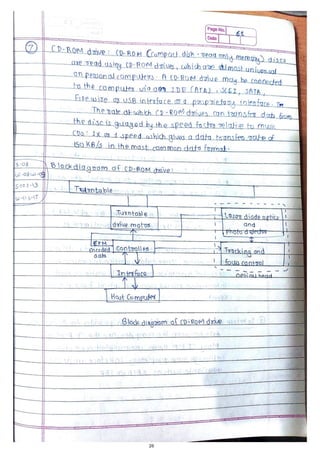 Page No. 
Date
7
CD-ROM drive: CD-ROM (compact disk - read only memory) discs
are read using CD-ROM drives, which are almost universal
on personal computers. A CD-ROM drive may be connected
to the computer via an IDE (ATA), SCSI, SATA,
Firewire or USB interface or a proprietary interface.
The rate at which CD-ROM drives can transfer data from
the disc is guaged by the speed factor relative to music
CDs: 1x or 1 speed which gives a data transfer rate of
150 KB/s in the most common data format.
Block diagram of CD-ROM drive:
Turntable
Turntable
drive motor
Laser diode optics
and
Photo detector
EFM
encoded
data
Controller
Tracking and
focus control
Interface
Optical head
Host Computer
Block diagram of CD-ROM drive
26